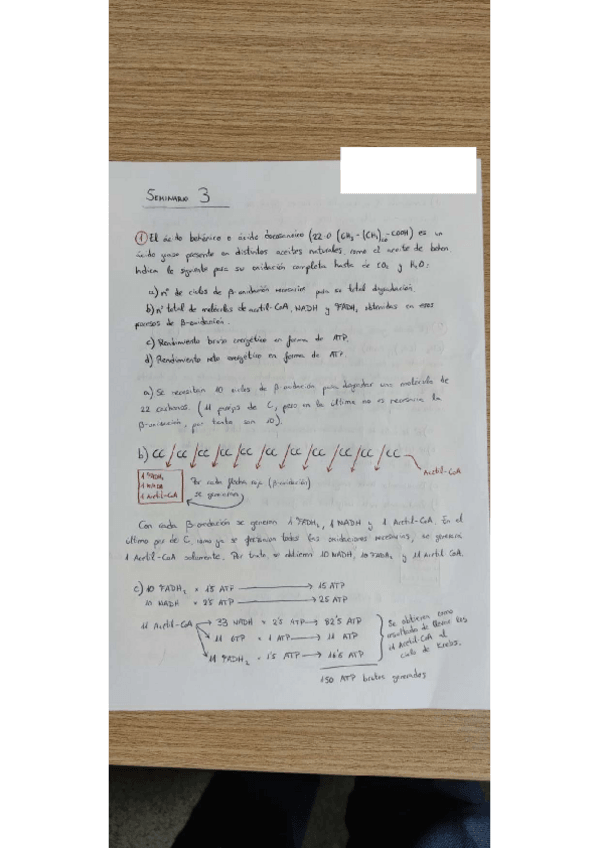 SEMINARIO 3
① El ácido behénico o ácido docosanoico (22:0 [CH3-(CH2)20-COOH) es un
ácido graso presente en distintos aceites naturales, como el aceite de behen.
Indica lo siguiente para su oxidación completa hasta de CO2 y H2O:
a) nº de ciclos de β-oxidación necesarios para su total degradación.
b) nº total de moléculas de acetil-CoA, NADH y FADH2 obtenidas en esos
procesos de β-oxidación.
c) Rendimiento bruto energético en forma de ATP.
d) Rendimiento neto energético en forma de ATP.
a) Se necesitan 10 ciclos de β-oxidación para degradar una molécula de
22 carbonos. (11 parejas de C, pero en la última no es necesaria la
β-oxidación, por tanto son 10).
b) CC / CC / CC / CC / CC / CC / CC / CC / CC / CC / CC
Acetil-CoA
1 FADH2
1 NADH
1 Acetil-CoA
Por cada flecha roja (β-oxidación)
se generan
Con cada β-oxidación se generan 1 FADH2, 1 NADH y 1 Acetil-CoA. En el
último par de C, como ya se han dado todas las oxidaciones necesarias, se generará
1 Acetil-CoA solamente. Por tanto, se obtienen 10 NADH, 10 FADH2 y 11 Acetil CoA.
c) 10 FADH2 × 1'5 ATP → 15 ATP
10 NADH × 2'5 ATP → 25 ATP
11 Acetil-CoA → 33 NADH × 2'5 ATP → 82'5 ATP
11 GTP × 1 ATP → 11 ATP
11 FADH2 × 1'5 ATP → 16'5 ATP
Se obtienen como
resultado de llevar los
11 Acetil-CoA al
ciclo de Krebs.
150 ATP brutos generados